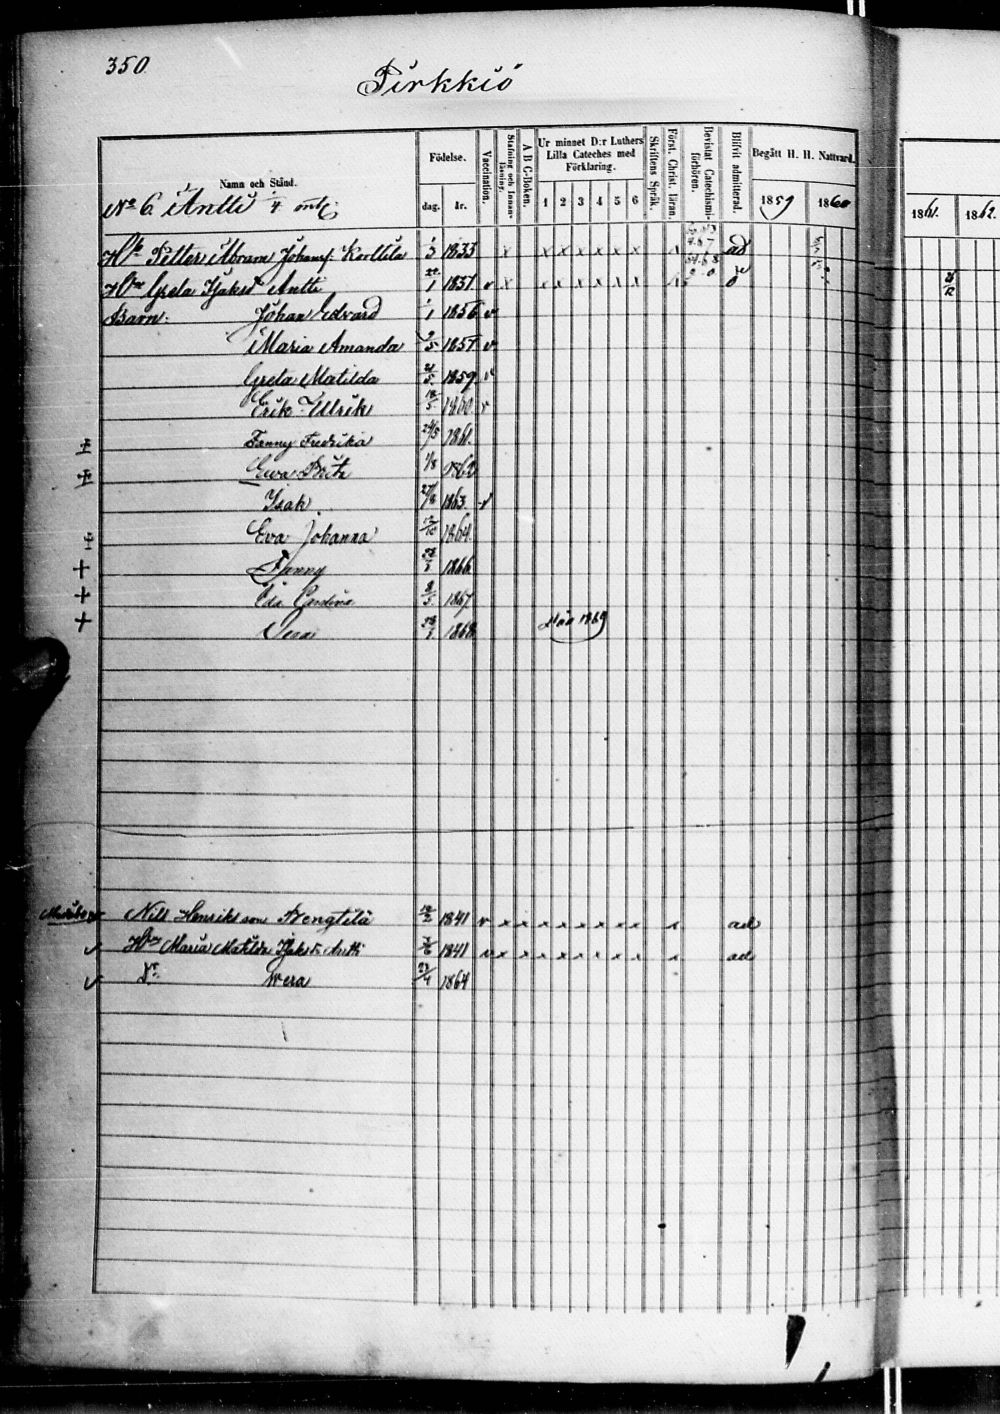 350
Pirkkiö
Namn och Stånd.
Födelse.
dag. år.
Vaccination.
Stafning och Innanläsning.
A B C-Boken.
Ur minnet D:r Luthers Lilla Cateches med Förklaring.
1 2 3 4 5 6
Skriftens Språk.
Först. Christ. läran.
Bevistat Catechismiförhören.
Blifvit admitterad.
Begått H. H. Nattvard.
1859 1860
1861. 1862.
No 6. Antti 1/4 mtl:
Petter Abram Johansf. Korttila 1/3 1833 x x x x x x x ad
Greta Isaksd. Antti 1 1831 v x x x x x x x
Barn: Johan Edvard 1/1 1856 v
Maria Amanda 9/5 1857 v
Greta Matilda 21/5 1859 v
Erik Ulrik 18/5 1860 v
Fanny Fredrika 24/5 1861.
Ewa Brita 1/8 1862
Isak 27/8 1863. v
Eva Johanna 12/10 1864.
+ Fanny 1866
+ Ida Carolina 1867
+ Vera 1868
1869
Nils Henriksson Prengtilä 1841 v x x x x x x x x x ad
Maria Matilda Isaksd. Antti 1841 v x x x x x x x x x ad
Dr. Wera 23/4 1864